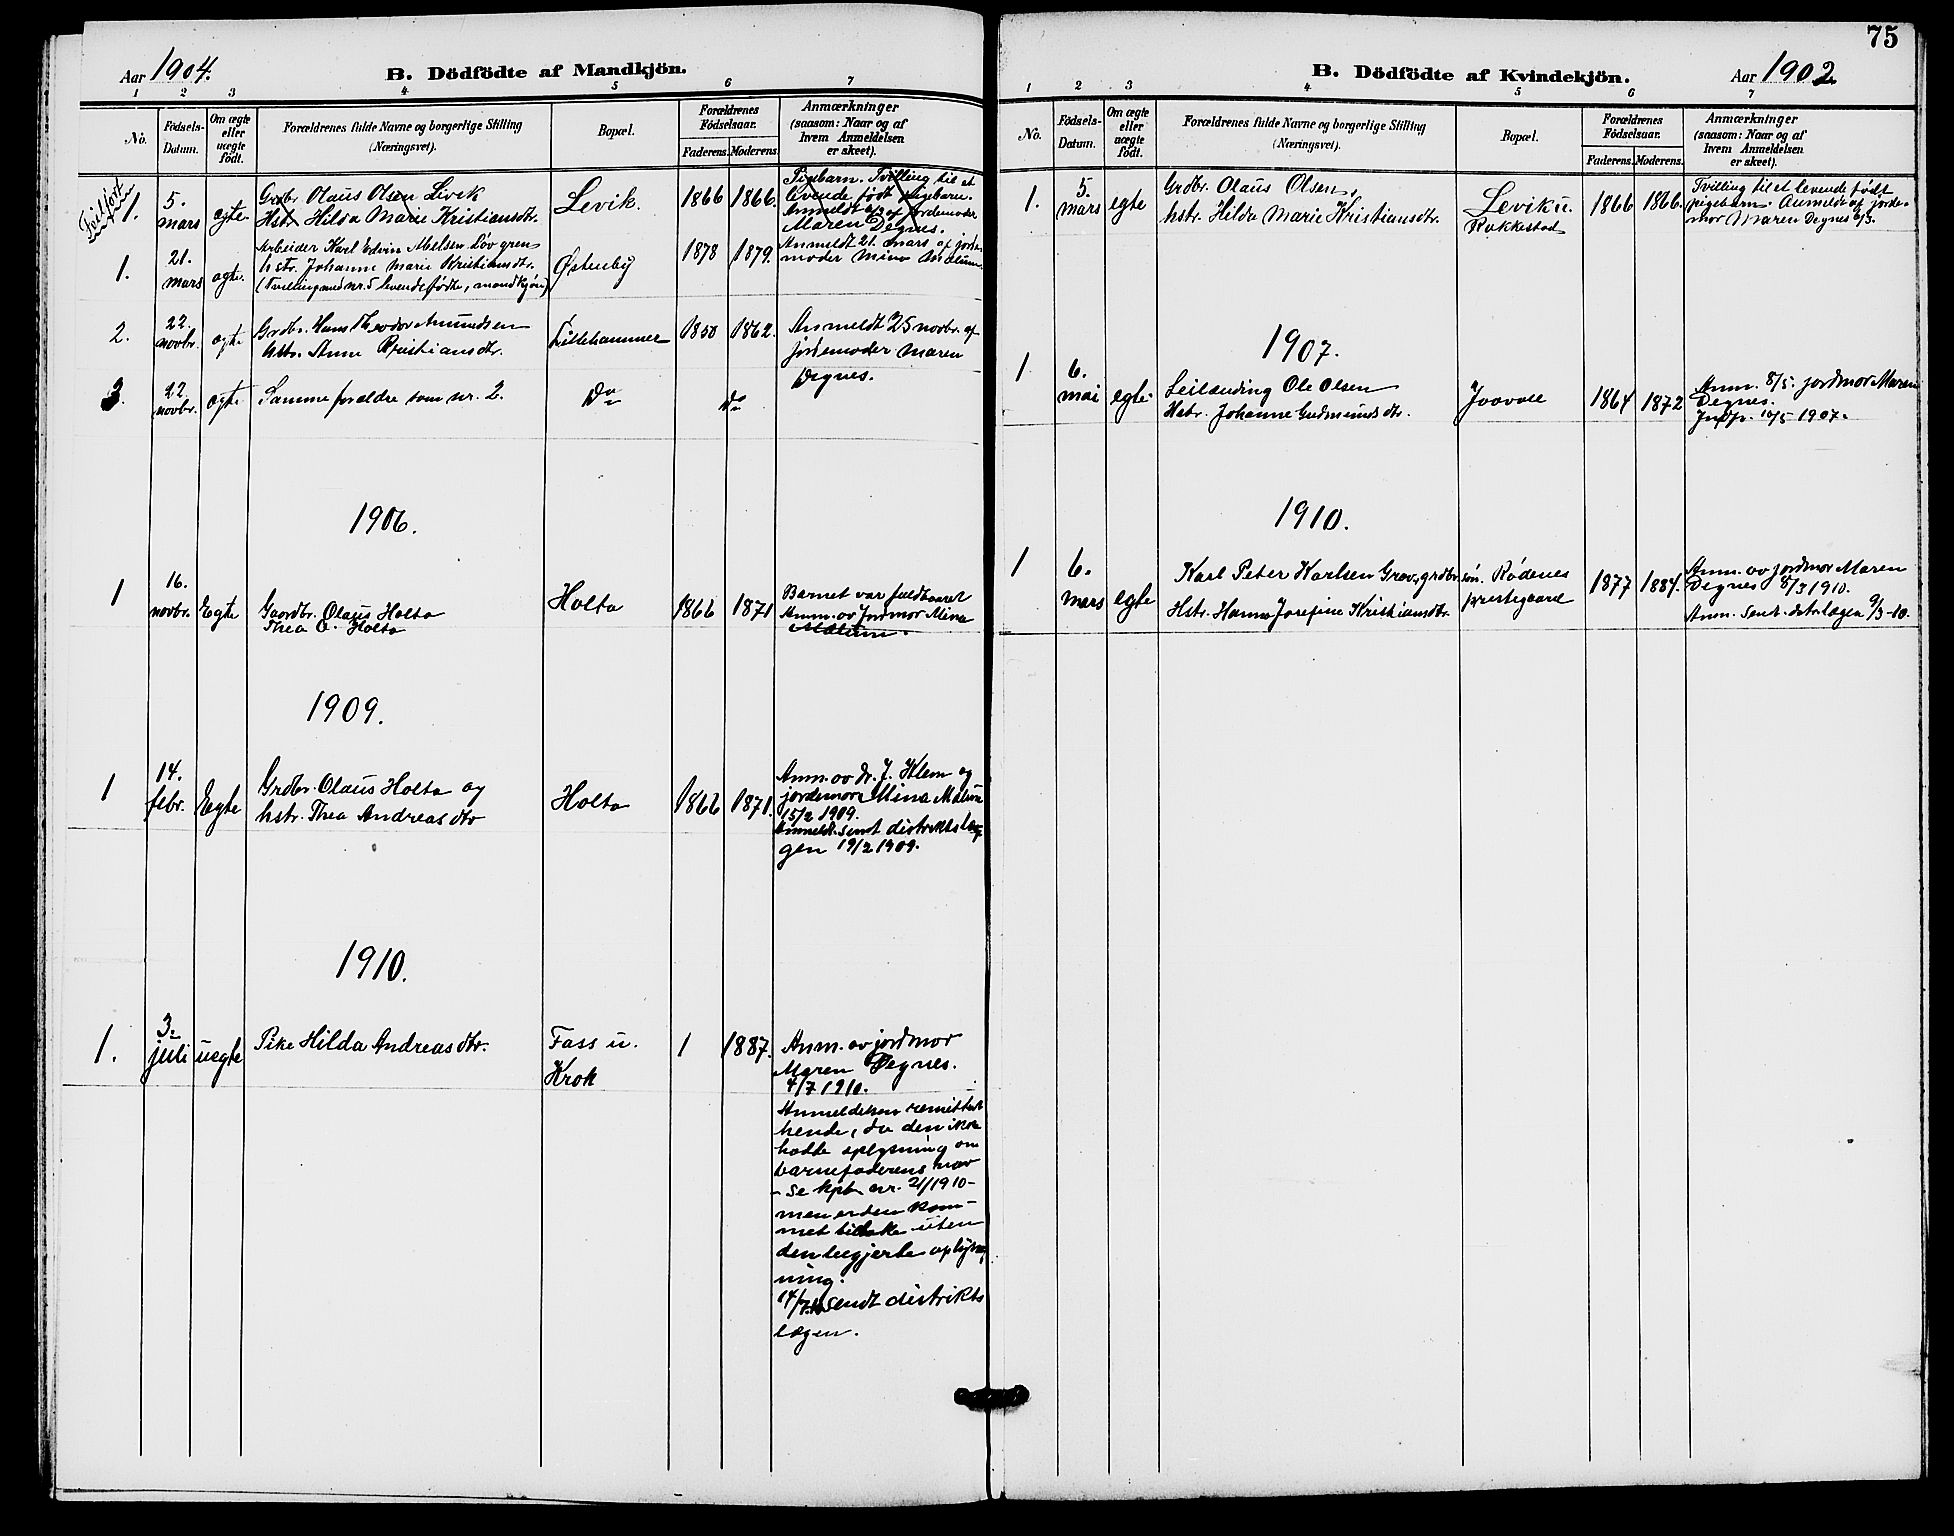 75
Aar 1904.
B. Dödfödte af Mandkjön.
1 2 3 4 5 6 7
No.
Födsels-Datum.
Om ægte eller uægte födt.
Forældrenes fulde Navne og borgerlige Stilling
(Næringsvei).
Bopæl.
Forældrenes Födselsaar.
Faderens. Moderens.
Anmærkninger
(saasom: Naar og af
hvem Anmeldelsen
er skeet).
Feilført
1. 5. mars ægte
Grdbr. Olaus Olsen Levik
Hstr. Hilda Marie Kristiansdtr.
Levik. 1866 1866.
Pigebarn. Tvilling til et
levende født pigebarn.
Anmeldt af jordemoder
Maren Degnes.
1. 21. mars ægte
Arbeider Karl Edvin Nielsen Løvgren
hstr. Johanne Marie Kristiansdtr.
(Tvilling med nr. 5 levendefødte, mandkjøn)
Østenby 1878 1879.
Anmeldt 21. mars af jorde-
moder Mina Mælum.
2. 22. novbr. ægte
Grdbr. Hans Theodor Amundsen
hstr. Anne Kristiansdtr.
Lillehammer 1850 1862.
Anmeldt 25 novbr. af
jordemoder Maren
Degnes.
3. 22. novbr. ægte
Samme forældre som nr. 2.
Do Do
1906.
1 16. novbr. Egte
Gaardbr. Olaus Holta
Thea O. Holta
Holta 1866 1871
Barnet var fuldbaaret
Anm. av Jordmor Mina
Mælum.
1909.
1 14. febr. Egte
Grdbr. Olaus Holta og
hstr. Thea Andreasdtr
Holta 1866 1871.
Anm. av dr. J. Klem og
jordemor Mina Mælum
15/2 1909.
Anmeldt. sendt distriktslæ-
gen 19/2 1909.
1910.
1. 3. juli uegte
Pike Hilda Andreasdtr.
Fass u.
Krok
1 1887.
Anm. av jordmor
Maren Degnes.
4/7 1910.
Anmeldelsen remittert
hende, da den ikke
hadde oplysning om
barnefaderens nav
- Se kpb nr. 21/1910 -
men er den kom-
met tilbake uten
den begjerte oplys-
ning.
14/7.10 Sendt distrikts
lægen.
B. Dödfödte af Kvindekjön.
Aar 1902
1 2 3 4 5 6 7
No.
Födsels-Datum.
Om ægte eller uægte födt.
Forældrenes fulde Navne og borgerlige Stilling
(Næringsvei).
Bopæl.
Forældrenes Födselsaar.
Faderens. Moderens.
Anmærkninger
(saasom: Naar og af
hvem Anmeldelsen
er skeet).
1. 5. mars egte
Grdbr. Olaus Olsen,
hstr. Hilda Marie Kristiansdtr.
Levik u.
Rakkestad
1866 1866.
Tvilling til et levende født
pigebarn. Anmeldt af jorde-
mor Maren Degnes 6/3.
1907.
1 6. mai egte.
Leilænding Ole Olsen
Hstr. Johanne Gudmundsdtr.
Jaavall 1864 1872
Anm. 8/5. jordmor Maren
Degnes.
Indf. 10/5 1907.
1910.
1 6. mars egte
Karl Peter Karlsen Grav, grdbr.søn.
Hstr. Hanna Josefine Kristiansdtr.
Rødenes
prestegaard
1877 1884.
Anm. av jordmor Maren
Degnes 8/3 1910.
Anm. sendt. dstrlægen 9/3-10.